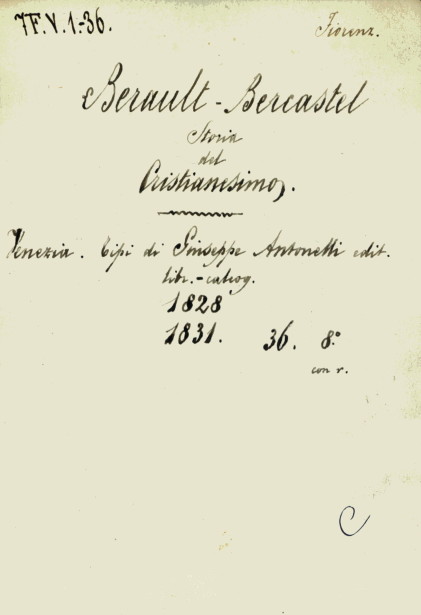 7F.V.1.-36.
Fiorenz.
Berault-Bercastel
Storia
del
Cristianesimo.
Venezia. Tipi di Giuseppe Antonelli edit.
libr.-calcog.
1828
1831. 36. 8.°
con r.
C